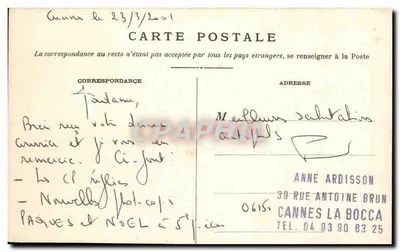 Cannes le 23/3/2001
CARTE POSTALE
La correspondance au recto n'étant pas acceptée par tous les pays étrangers, se renseigner à la Poste
CORRESPONDANCE
Madame,
Bien reçu votre
courrier et je vous en
remercie. Ci-joint
- Les CP
- Nouvelles photocopies
PAQUES et NOEL à 5F pièce
ADRESSE
Meilleures salutations
ANNE ARDISSON
39 RUE ANTOINE BRUN
06150 CANNES LA BOCCA
TEL. 04 93 90 83 25
DELCAMPE